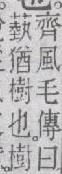 齊風毛傳曰
蓺猶樹也。樹